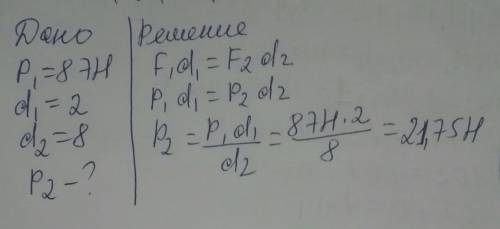 Дано
P₁=87Н
d₁=2
d₂=8
P₂-?
Решение
F₁d₁=F₂d₂
P₁d₁=P₂d₂
P₂=P₁d₁/d₂=87Н·2/8=21,75Н